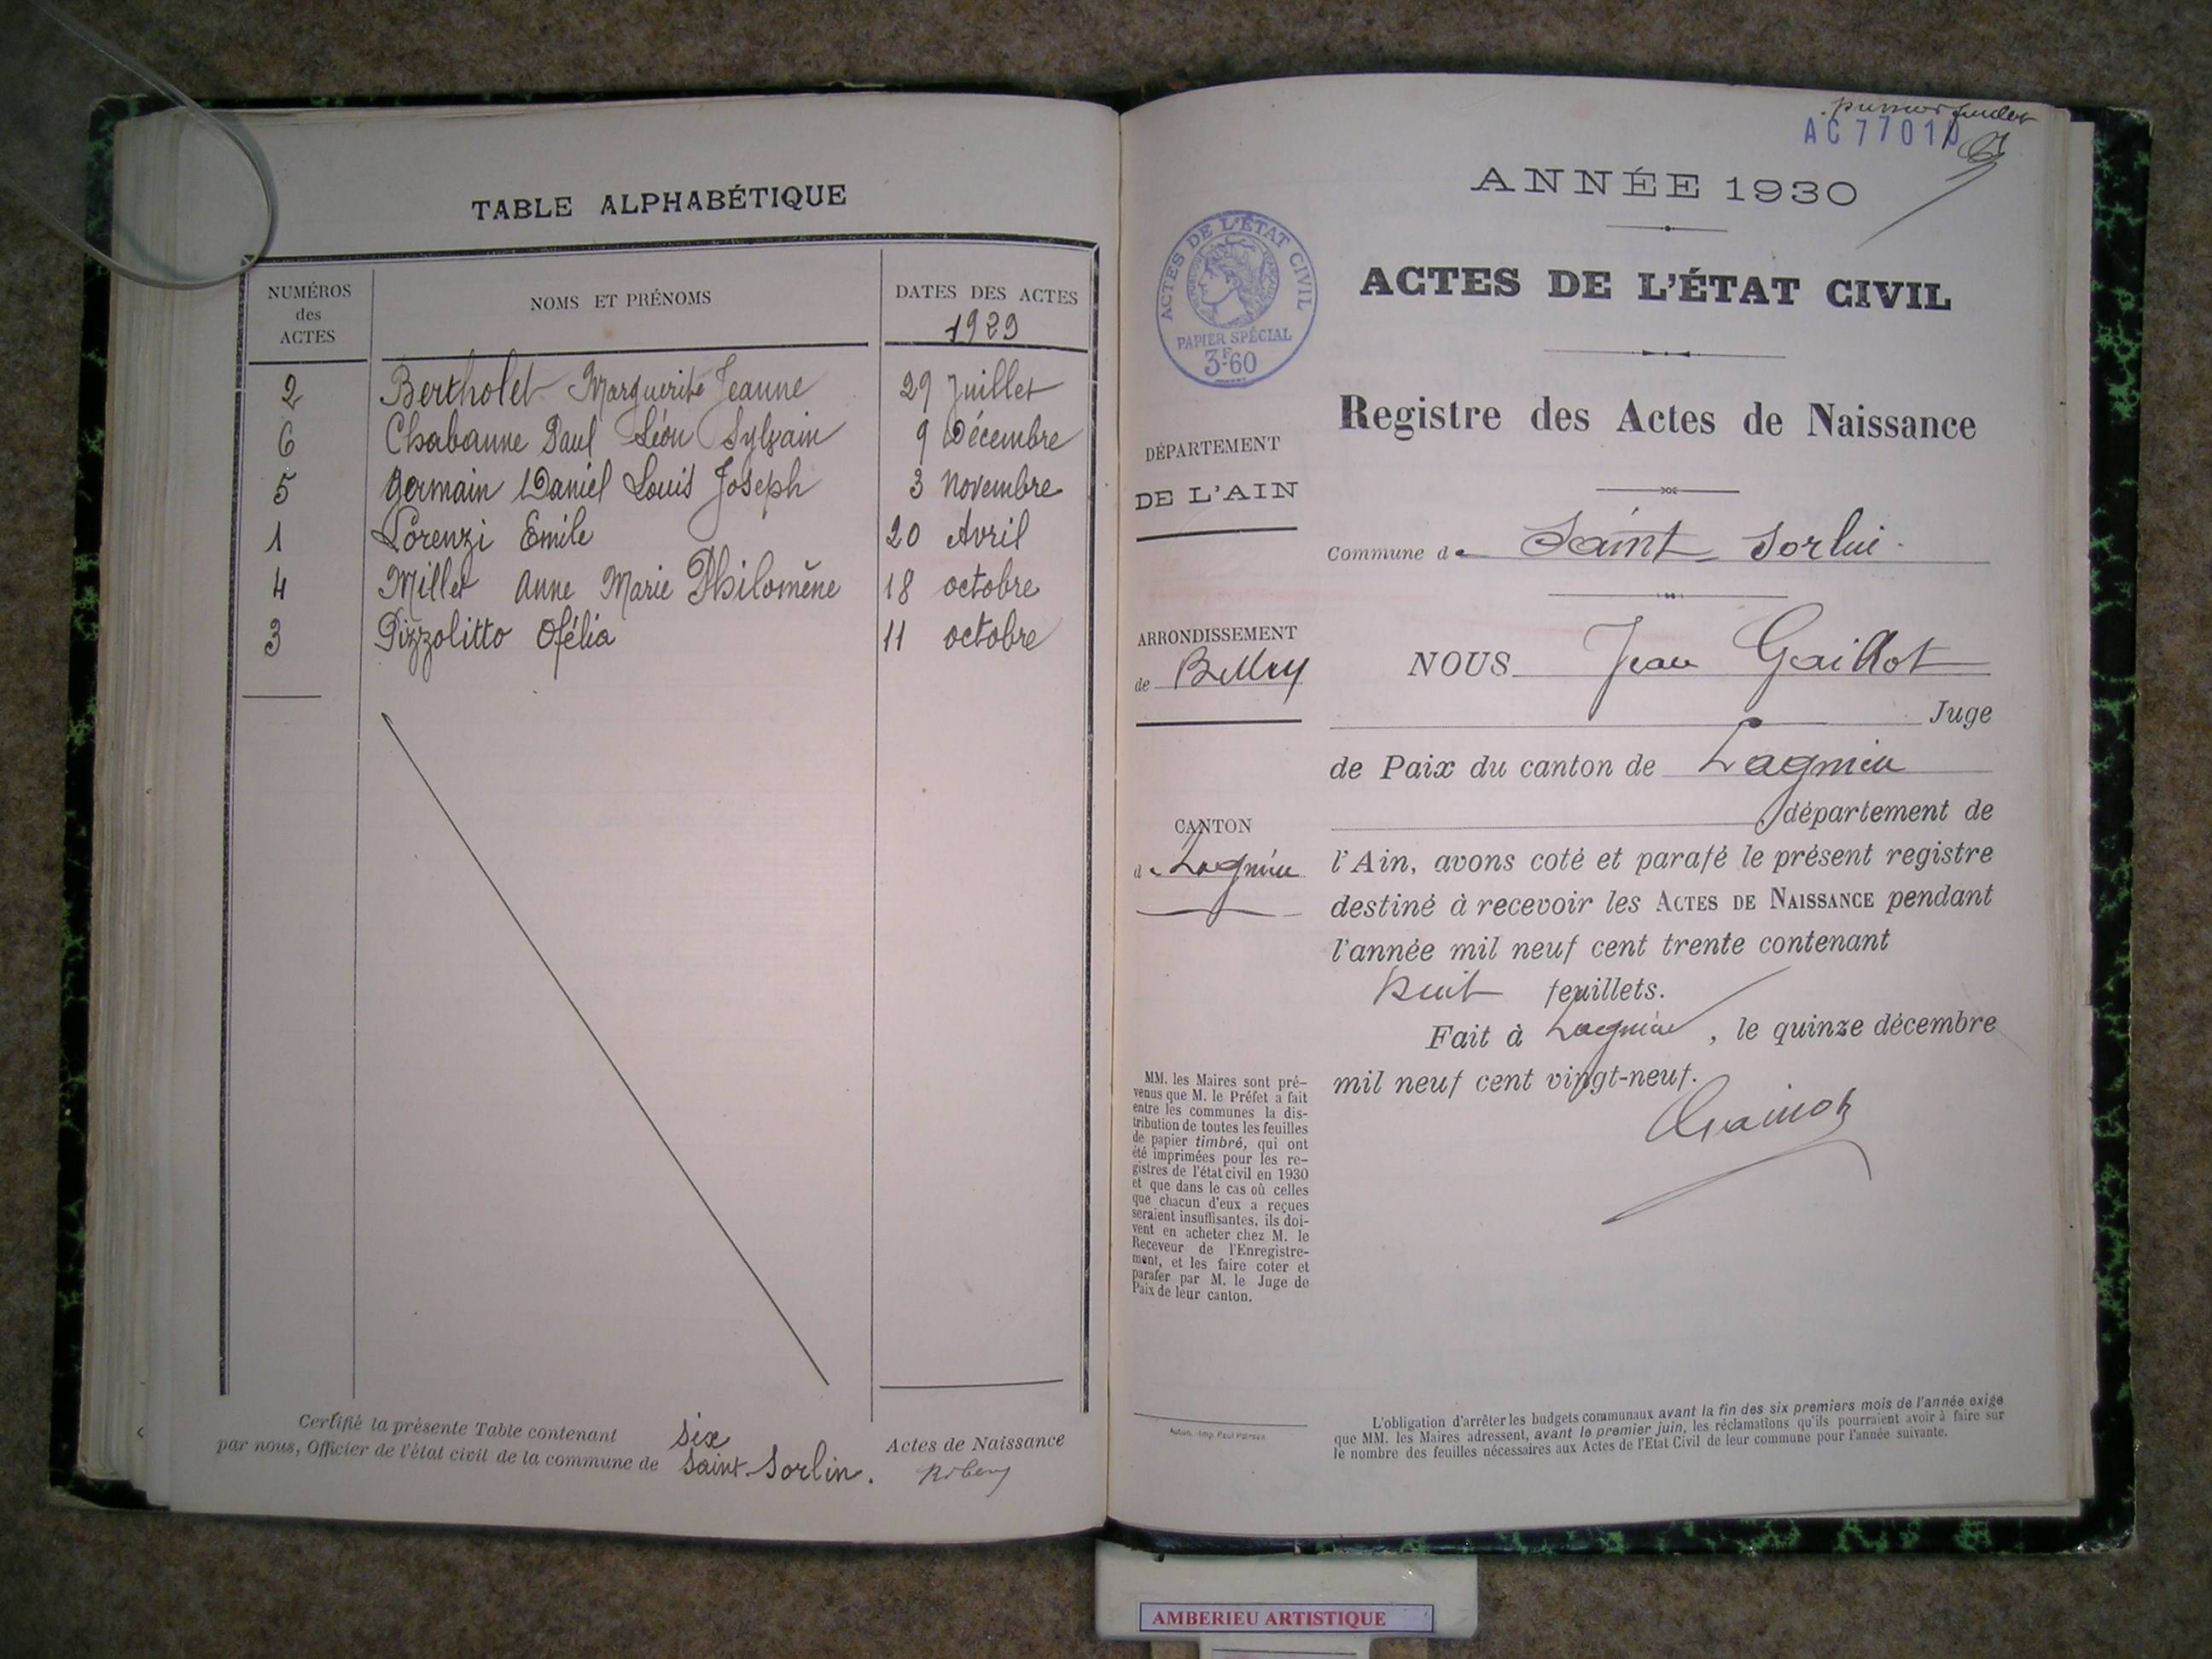 TABLE ALPHABÉTIQUE
NUMÉROS des ACTES
NOMS ET PRÉNOMS
DATES DES ACTES
1929
2 Bertholet Marguerite Jeanne 29 Juillet
6 Chabanne Paul Léon Sylvain 9 Décembre
5 Germain Daniel Louis Joseph 3 Novembre
1 Lorenzi Emile 20 Avril
4 Millet Anne Marie Philomène 18 octobre
3 Pizzolitto Ofélia 11 octobre
Certifié la présente Table contenant six Actes de Naissance
par nous, Officier de l'état civil de la commune de Saint-Sorlin.
premier feuillet
AC 77010
ANNÉE 1930
ACTES DE L'ÉTAT CIVIL
PAPIER SPÉCIAL
3F60
ACTES DE L'ÉTAT CIVIL
Registre des Actes de Naissance
DÉPARTEMENT
DE L'AIN
Commune de Saint Sorlin
ARRONDISSEMENT
de Belley
CANTON
de Lagnieu
NOUS Jean Gaillot
Juge
de Paix du canton de Lagnieu
département de
l'Ain, avons coté et parafé le présent registre
destiné à recevoir les ACTES DE NAISSANCE pendant
l'année mil neuf cent trente contenant
huit feuillets.
Fait à Lagnieu, le quinze décembre
mil neuf cent vingt-neuf.
MM. les Maires sont pré-
venus que M. le Préfet a fait
entre les communes la dis-
tribution de toutes les feuilles
de papier timbré, qui ont
été imprimées pour les re-
gistres de l'état civil en 1930
et que dans le cas où celles
que chacun d'eux a reçues
seraient insuffisantes, ils doi-
vent en acheter chez M. le
Receveur de l'Enregistre-
ment, et les faire coter et
parafer par M. le Juge de
Paix de leur canton.
L'obligation d'arrêter les budgets communaux avant la fin des six premiers mois de l'année exige
que MM. les Maires adressent, avant le premier juin, les réclamations qu'ils pourraient avoir à faire sur
le nombre des feuilles nécessaires aux Actes de l'Etat Civil de leur commune pour l'année suivante.
AMBERIEU ARTISTIQUE